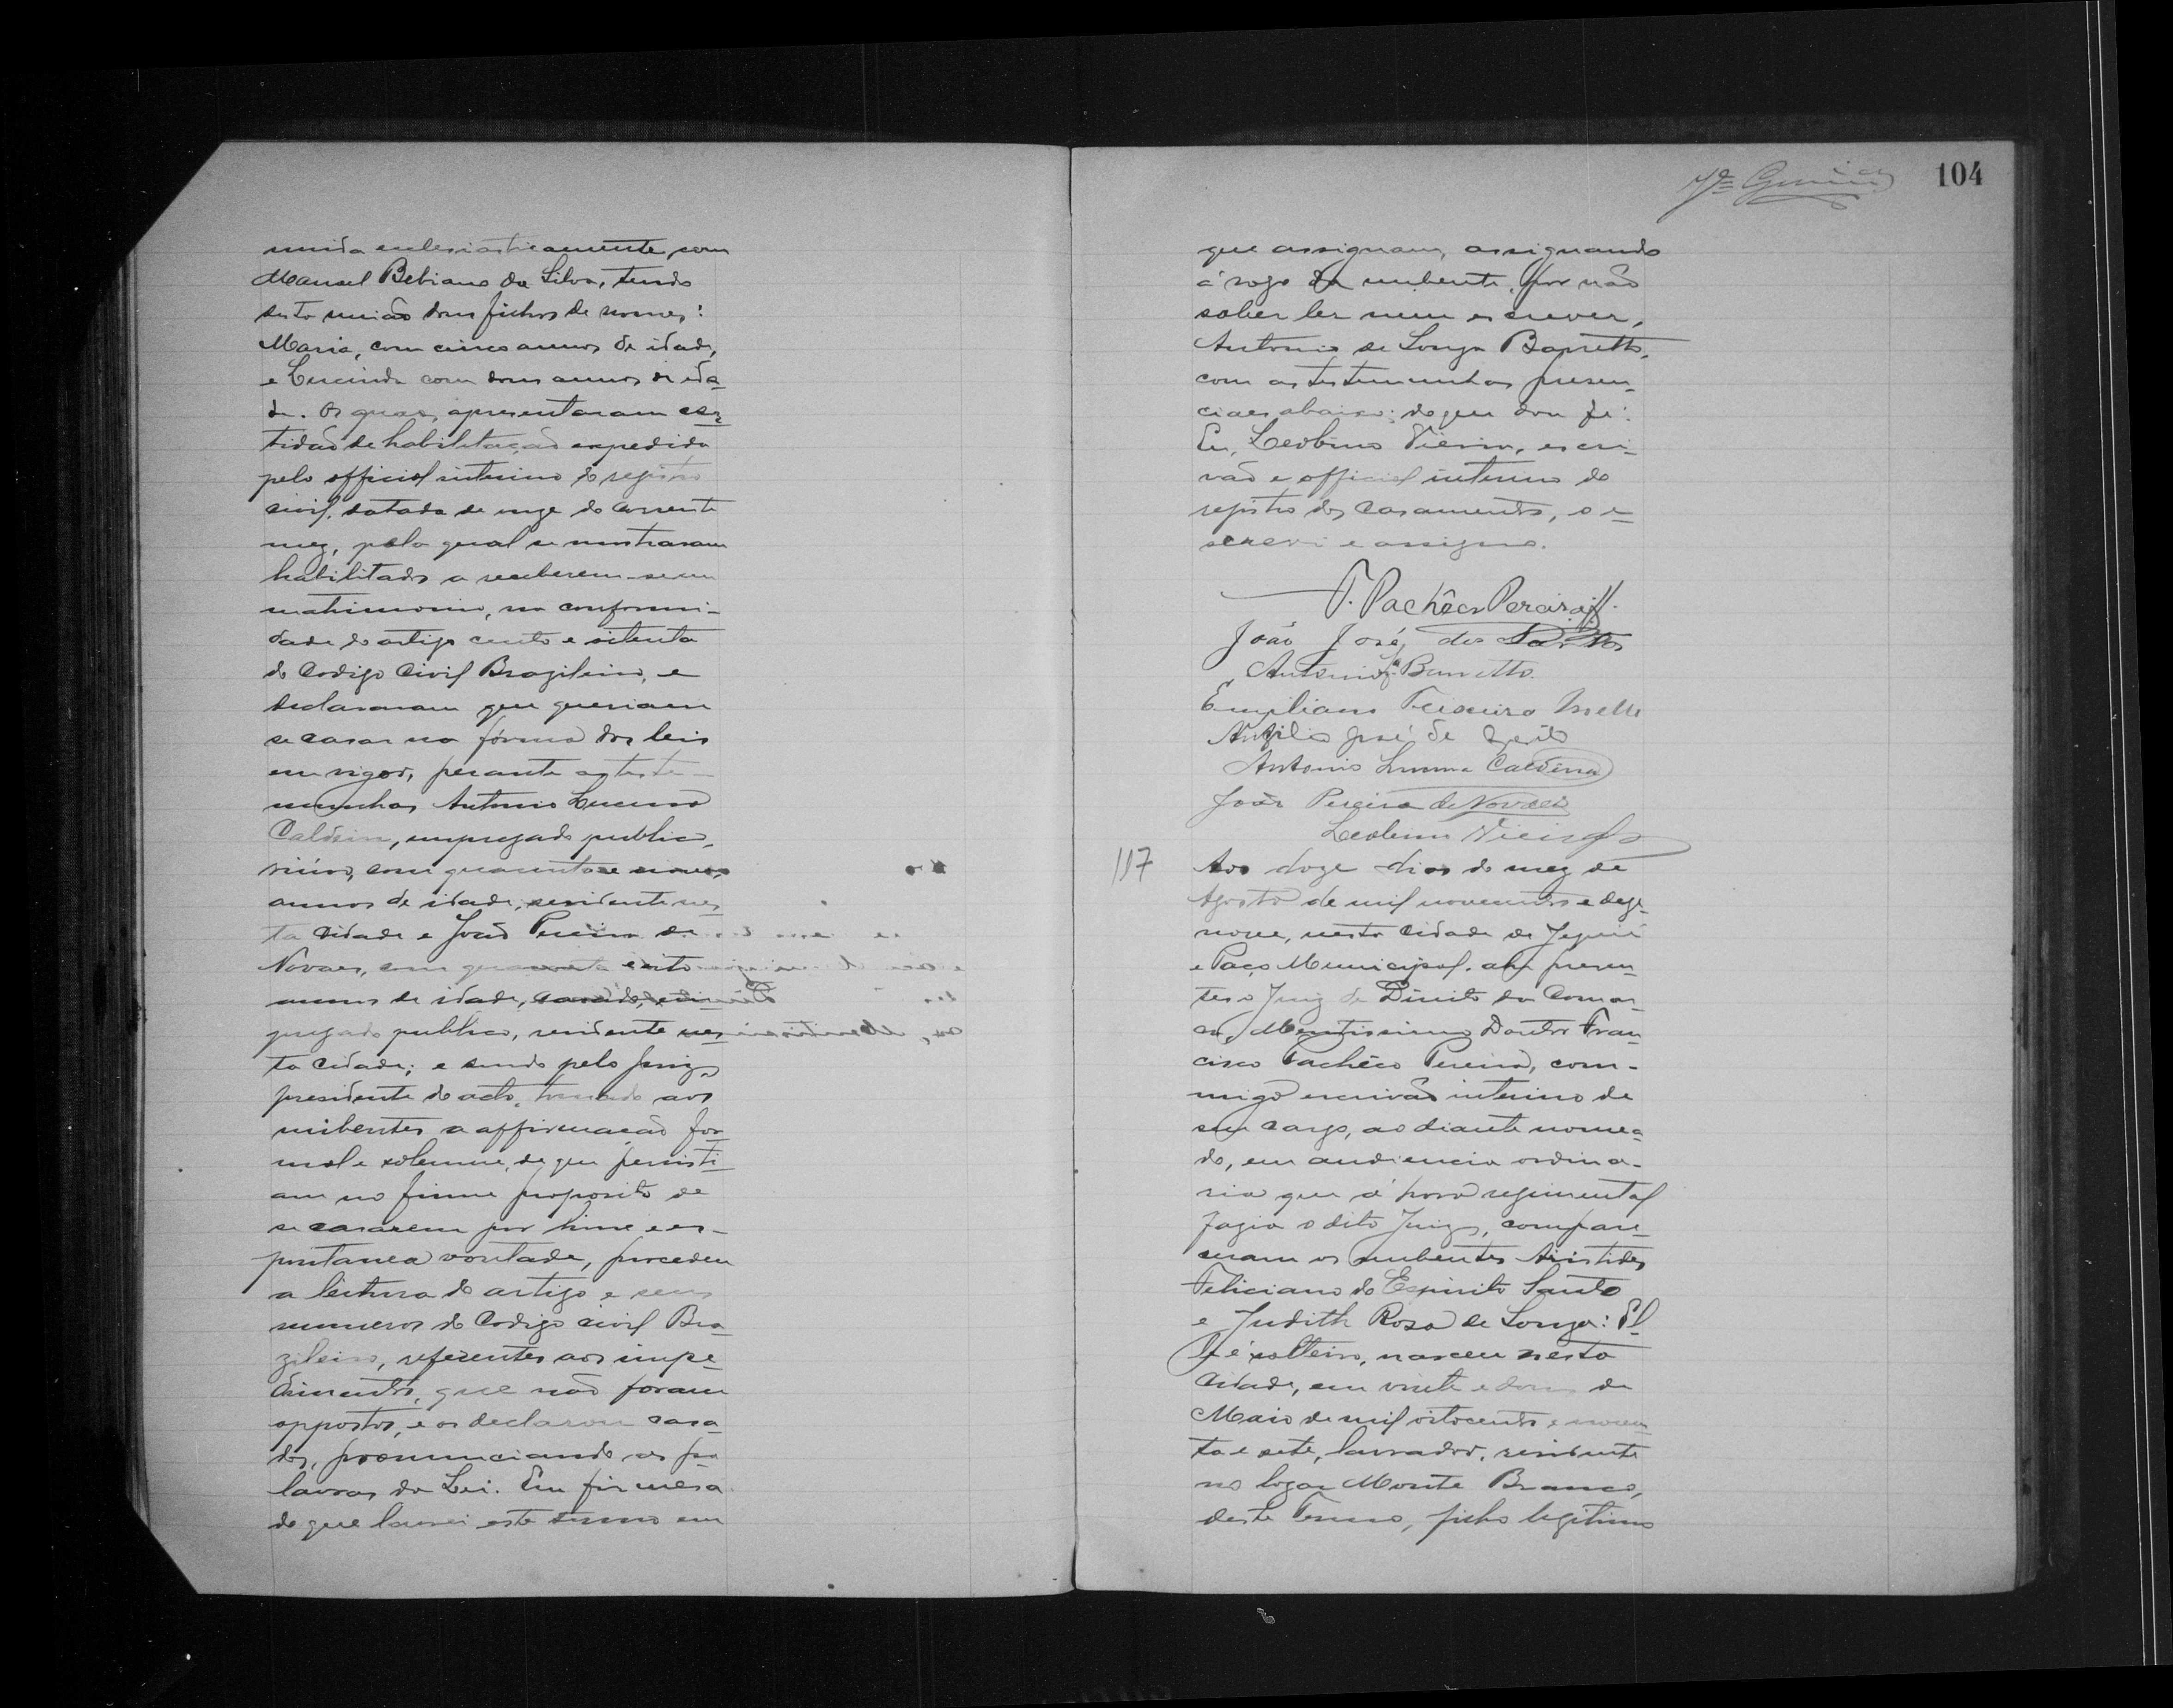 unida ecclesiasticamente com
Manoel Bebiano da Silva, tendo
desta união dous filhos de nomes:
Maria, com cinco annos de idade,
e Lucinda com dous annos de ida-
de. Os quaes, apresentaram cer-
tidão de habilitação expedida
pelo official interino do registro
civil, datada de onze do corrente
mez, pela qual se mostraram
habilitados a receberem-se em
matrimonio, na conformi-
dade do artigo cento e oitenta
do Codigo Civil Brazileiro, e
declararam que queriam
se casar na fórma das leis
em vigor, perante as teste-
munhas Antonio Lucena
Caldeira, empregado publico,
viúvo, com quarenta e cinco
annos de idade, residente nes-
ta Cidade e João Pereira de
Novaes, com quarenta e oito
annos de idade, casado, em-
pregado publico, residente nes-
ta Cidade; e sendo pelo Juiz,
presidente do acto, tomado aos
nubentes a affirmação for-
mal e solemne, de que persisti-
am no firme proposito de
se casarem por livre e es-
pontanea vontade, procedeu
a leitura do artigo e seus
numeros do Codigo civil Bra-
zileiro, referentes aos impe-
dimentos, que não foram
oppostos, e os declarou casa-
dos, pronunciando as pa-
lavras da Lei. Em firmesa
do que lavrei este termo em
104
que assignam, assignando
á rogo da nubente, por não
saber ler nem escrever,
Antonio de Souza Barretto,
com as testemunhas presen-
ciaes abaixo; do que dou fé.
Eu, Leobino Vieira, escri-
vão e official interino do
registro dos Casamentos, o e-
screvi e assigno.
F. Pachêco Pereira
João José dos Santos
Antonio Sa Barretto
Empliano Teixeira Mello
José de Brito
Antonio Lucena Caldeira
João Pereira de Novaes
Leobino Vieira
117
Aos doze dias do mez de
Agosto de mil novecentos e deze-
nove, nesta Cidade de Jequié
e Paço Municipal, ahi presen-
tes o Juiz de Direito da Comar-
ca, Meritissimo Doutor Fran-
cisco Pachêco Pereira, com-
migo escrivão interino de
seu cargo, ao diante nomea-
do, em audiencia ordina-
ria que á hora regimental
fazia o dito Juiz, compare-
ceram os nubentes Aristides
Feliciano do Espirito Santo
e Judith Rosa de Souza: El-
le é solteiro, nasceu nesta
Cidade, em vinte e dous de
Maio de mil oitocentos e noven-
ta e sete, lavrador, residente
no logar Monte Branco,
deste Termo, filho legitimo